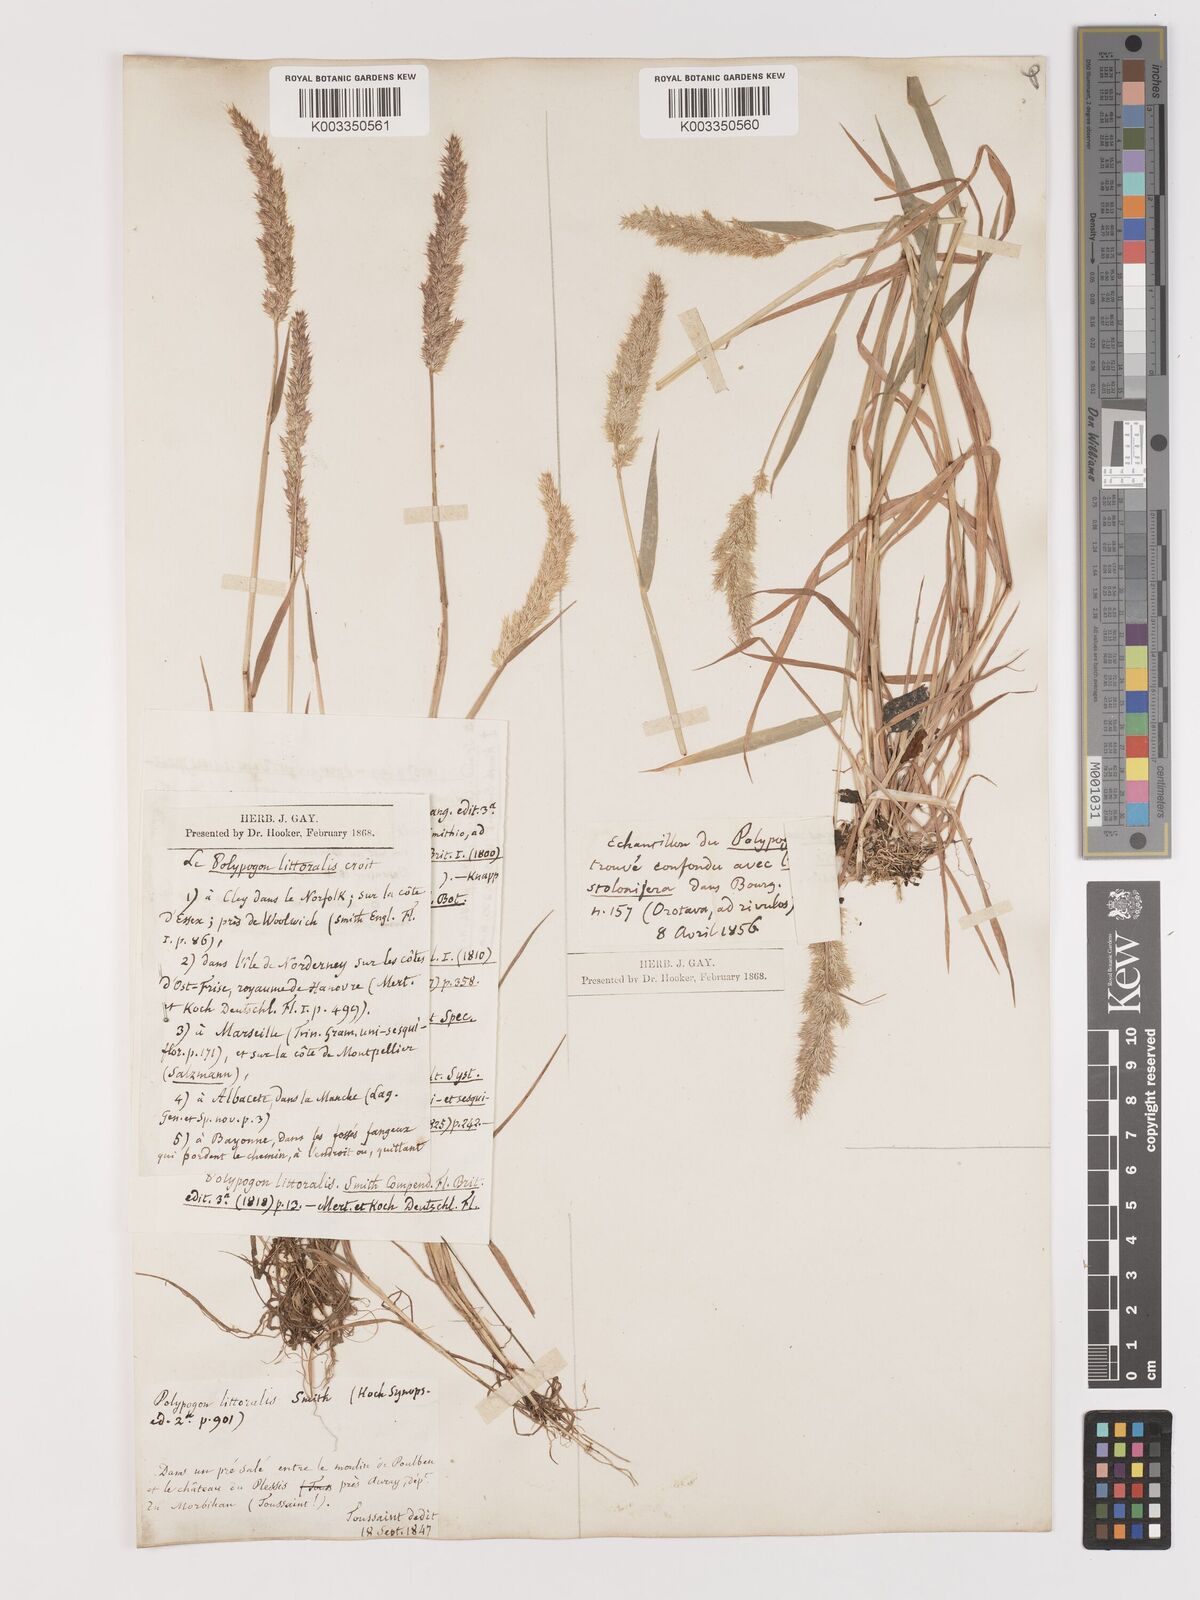 ROYAL BOTANIC GARDENS KEW
K003350561
ROYAL BOTANIC GARDENS KEW
K003350560
HERB. J. GAY.
Presented by Dr. Hooker, February 1868.
Le Polypogon littoralis croit
1) à Cley dans le Norfolk; sur la côte
d'Essex; près de Woolwich (Smith Engl. Fl.
I. p. 86);
2) dans l'île de Norderney sur les côtes
d'Ost-Frise, royaume de Hanovre (Mert.
et Koch Deutschl. Fl. I. p. 499).
3) à Marseille (Trin. Gram. uni-sesqui-
flor. p. 171), et sur la côte de Montpellier
(Salzmann);
4) à Albacete, dans la Manche (Lag.
Gen. et Sp. nov. p. 3)
5) à Bayonne, dans les fossés fangeux
qui bordent le chemin, à l'endroit où, quittant
ang. edit. 3a
mithio, ad
Brit. I. (1800)
). — Knapp
. Bot.
l. I. (1810)
7) p. 358.
t Spec.
lt. Syst.
i- et sesqui-
925) p. 242. —
Polypogon littoralis. Smith Compend. Fl. Brit.
edit. 3a (1818) p. 13. — Mert. et Koch Deutschl. Fl.
Polypogon littoralis Smith (Koch Synops.
ed. 2a p. 901)
Dans un pré salé entre le moulin de Poulben
et le château du Plessis près Auray, dépt.
du Morbihan (Toussaint!).
Toussaint dedit
18 Sept. 1847
Echantillon du Polypog
trouvé confondu avec l
stolonifera dans Bourg.
n. 157 (Orotava, ad rivulos)
8 Avril 1856
HERB. J. GAY.
Presented by Dr. Hooker, February 1868.
inches
Density
Don Williams
centimetres
M001031
copyright reserved
Royal Botanic Gardens
Kew
0 1 2 3 4 5 6 7 8 9 10
cm